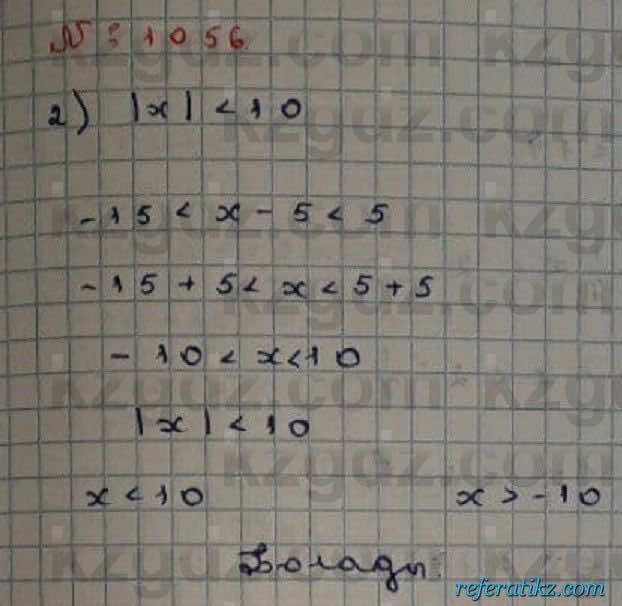 № 1056
2) |x| < 10
-15 < x - 5 < 5
-15 + 5 < x < 5 + 5
-10 < x < 10
|x| < 10
x < 10 x > -10
Болады.
referatikz.com